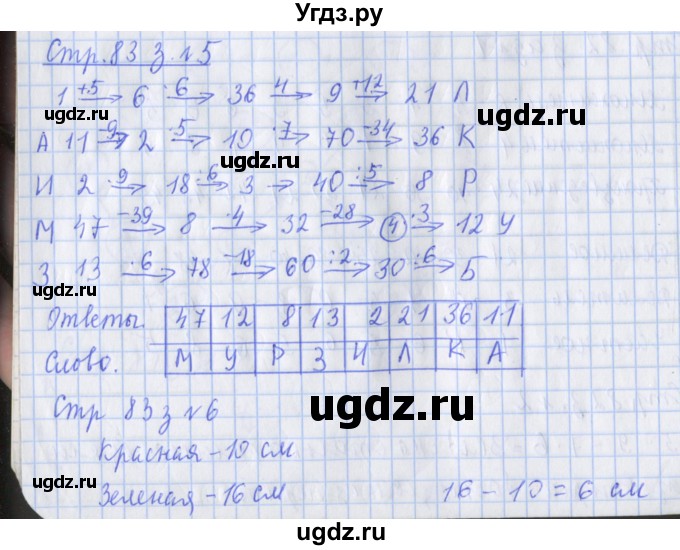 Угдз.ру
Стр. 83 з. №5
1 +5→ 6 ·6→ 36 4→ 9 +12→ 21 Л
А 11 -9→ 2 ·5→ 10 ·7→ 70 -34→ 36 К
И 2 ·9→ 18 :6→ 3 → 40 :5→ 8 Р
М 47 -39→ 8 ·4→ 32 -28→ 4 ·3→ 12 У
З 13 ·6→ 78 -18→ 60 :2→ 30 :6→ Б
Ответы. 47 12 8 13 2 21 36 11
Слово. М У Р З И Л К А
Стр 83 з №6
Красная - 10 см
Зеленая - 16 см 16 - 10 = 6 см
ugdz.ru
ugdz.ru
ugdz.ru
ugdz.ru
ugdz.ru
ugdz.ru
ugdz.ru
ugdz.ru
ugdz.ru
ugdz.ru
ugdz.ru